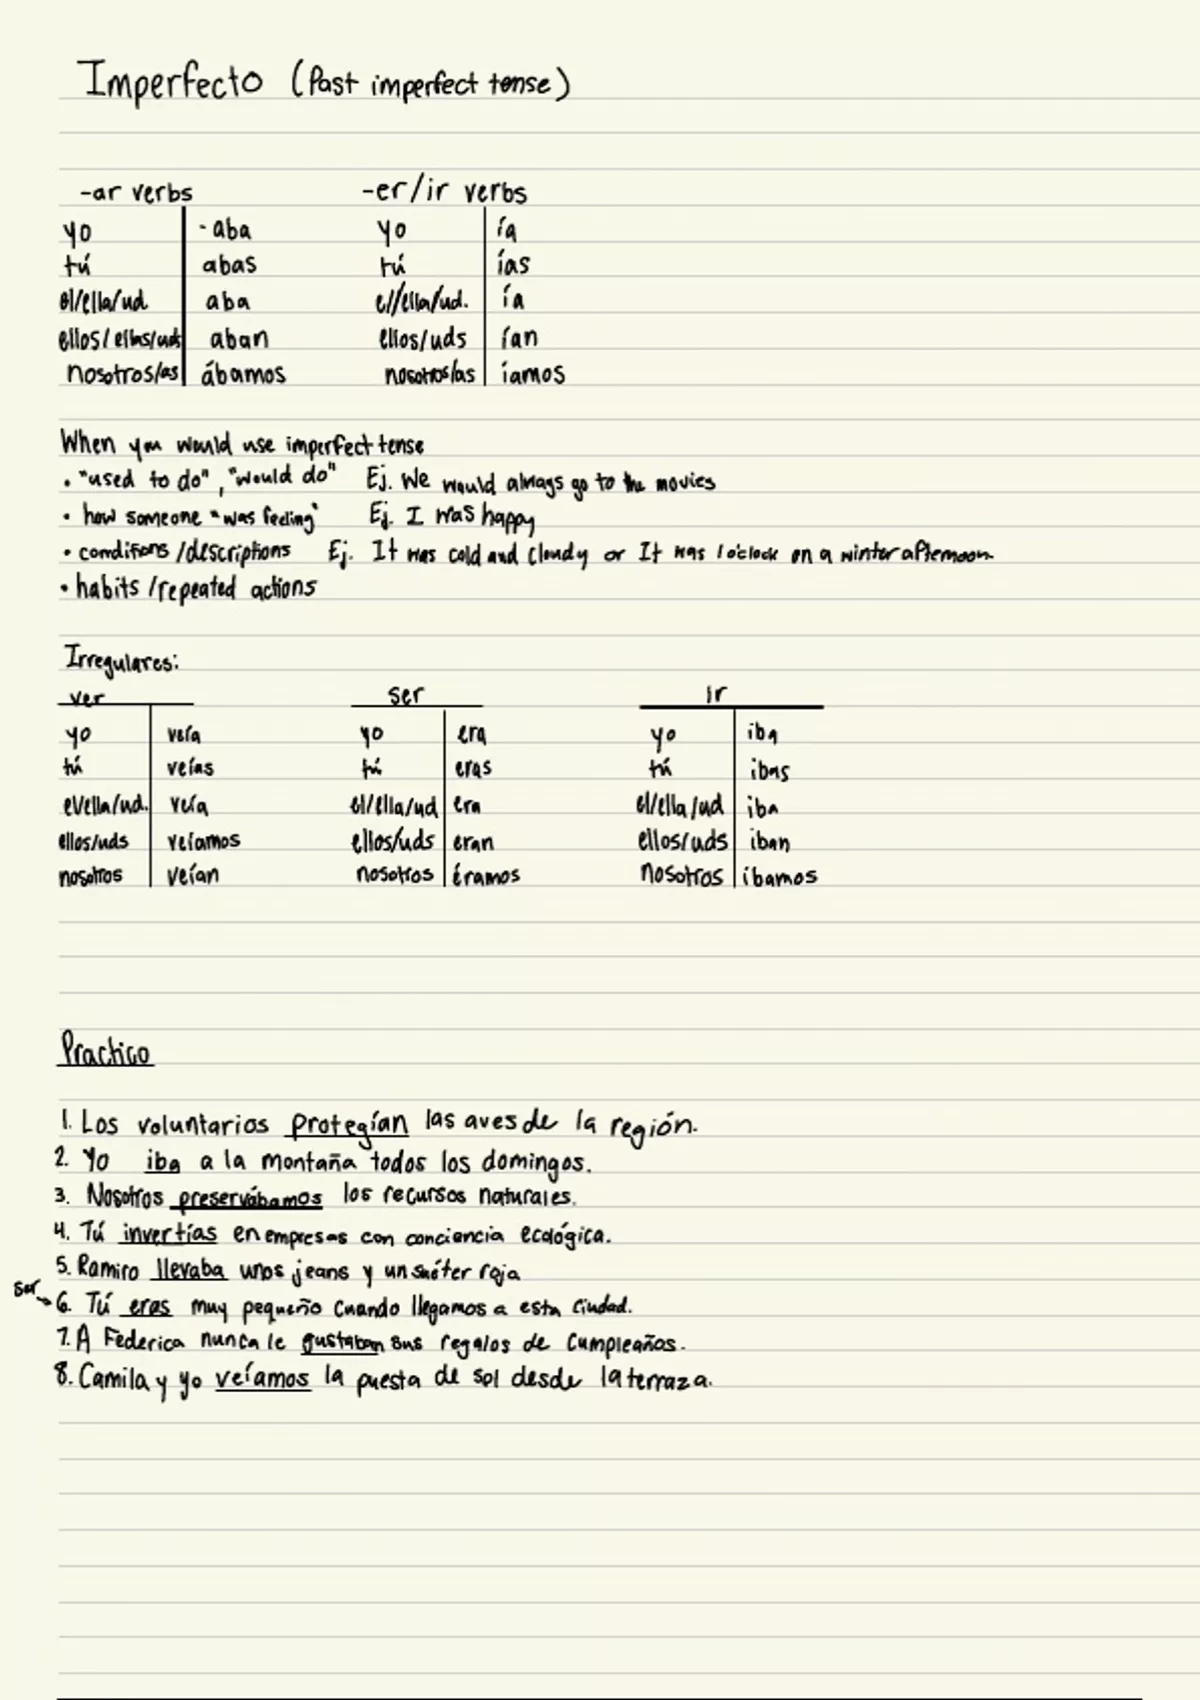 Imperfecto (Past imperfect tense)
-ar verbs -er/ir verbs
yo -aba yo ía
tú abas tú ías
él/ella/ud aba el/ella/ud. ía
ellos/ellas/uds aban ellos/uds ían
nosotros/as ábamos nosotros/as íamos
When you would use imperfect tense
• "used to do", "would do" Ej. We would always go to the movies
• how someone "was feeling" Ej. I was happy
• conditions/descriptions Ej. It was cold and cloudy or It was 1 o'clock on a winter afternoon
• habits/repeated actions
Irregulares:
ver ser ir
yo veía yo era yo iba
tú veías tú eras tú ibas
el/ella/ud. veía el/ella/ud era el/ella/ud iba
ellos/uds veíamos ellos/uds eran ellos/uds iban
nosotros veían nosotros éramos nosotros íbamos
Practico
1. Los voluntarios protegían las aves de la región.
2. Yo iba a la montaña todos los domingos.
3. Nosotros preservábamos los recursos naturales.
4. Tú invertías en empresas con conciencia ecológica.
5. Ramiro llevaba unos jeans y un suéter roja
ser → 6. Tú eras muy pequeño cuando llegamos a esta ciudad.
7. A Federica nunca le gustaban sus regalos de cumpleaños.
8. Camila y yo veíamos la puesta de sol desde la terraza.